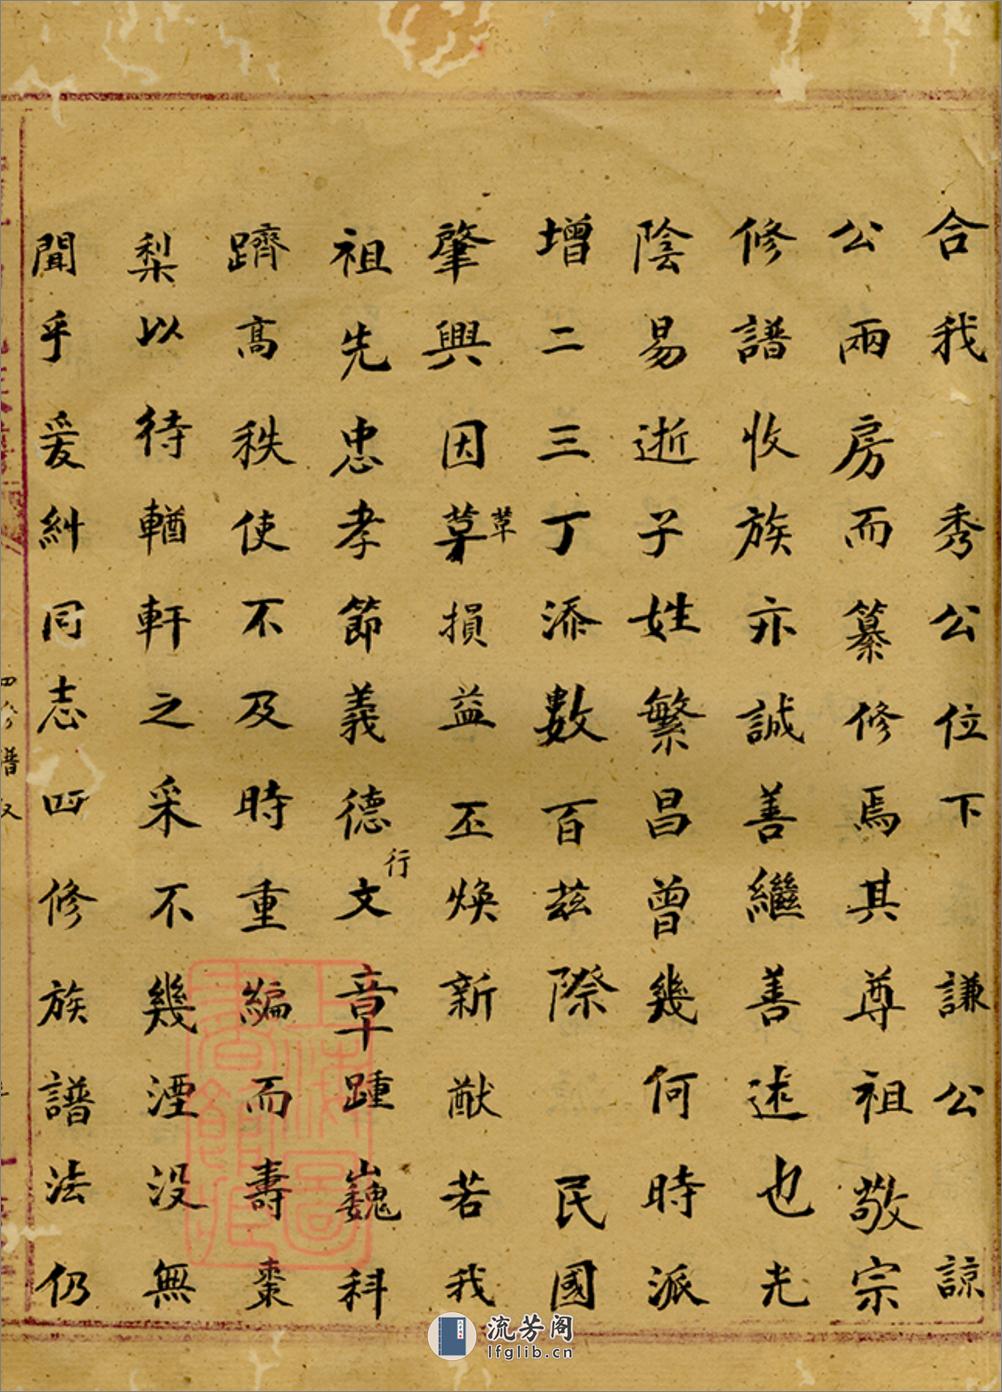 合我 秀公位下 謙公 諒
公兩房而纂修焉其尊祖敬宗
修譜收族亦誠善繼善述也光
陰易逝子姓繁昌曾幾何時派
增二三丁添數百茲際 民國
肇興因草草損益丕煥新猷若我
祖先忠孝節義德行文章踵巍科
躋高秩使不及時重編而壽棗
梨以待輶軒之采不幾湮没無
聞乎爰糾同志四修族譜法仍
流芳阁
lfglib.cn